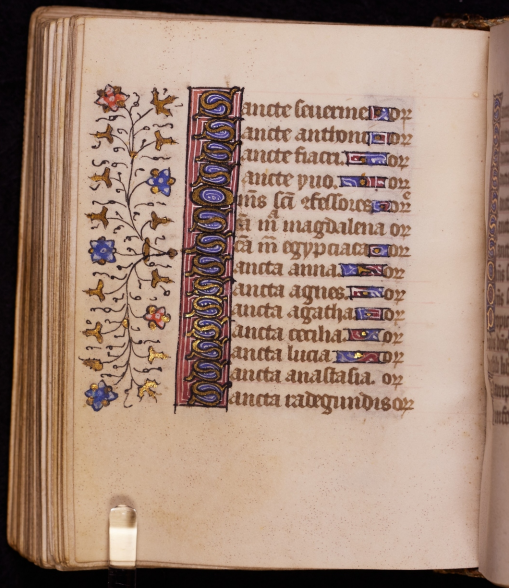 Sancte seuerine or
Sancte anthoni or
Sancte fiacri or
Sancte yuo. or
Om̄s sc̄i ꝯfessores or
Sc̄a m̄ magdalena or
Sc̄a m̄ egypciaca or
Sancta anna or
Sancta agnes or
Sancta agatha or
Sancta cecilia or
Sancta lucia or
Sancta anastasia. or
Sancta radegundis or